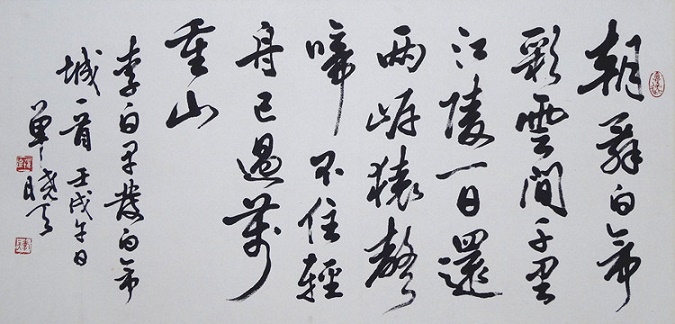 朝辞白帝
彩雲間千里
江陵一日還
两岸猿聲
啼不住輕
舟已過萬
重山
李白早發白帝
城一首 壬戌年日
單曉天